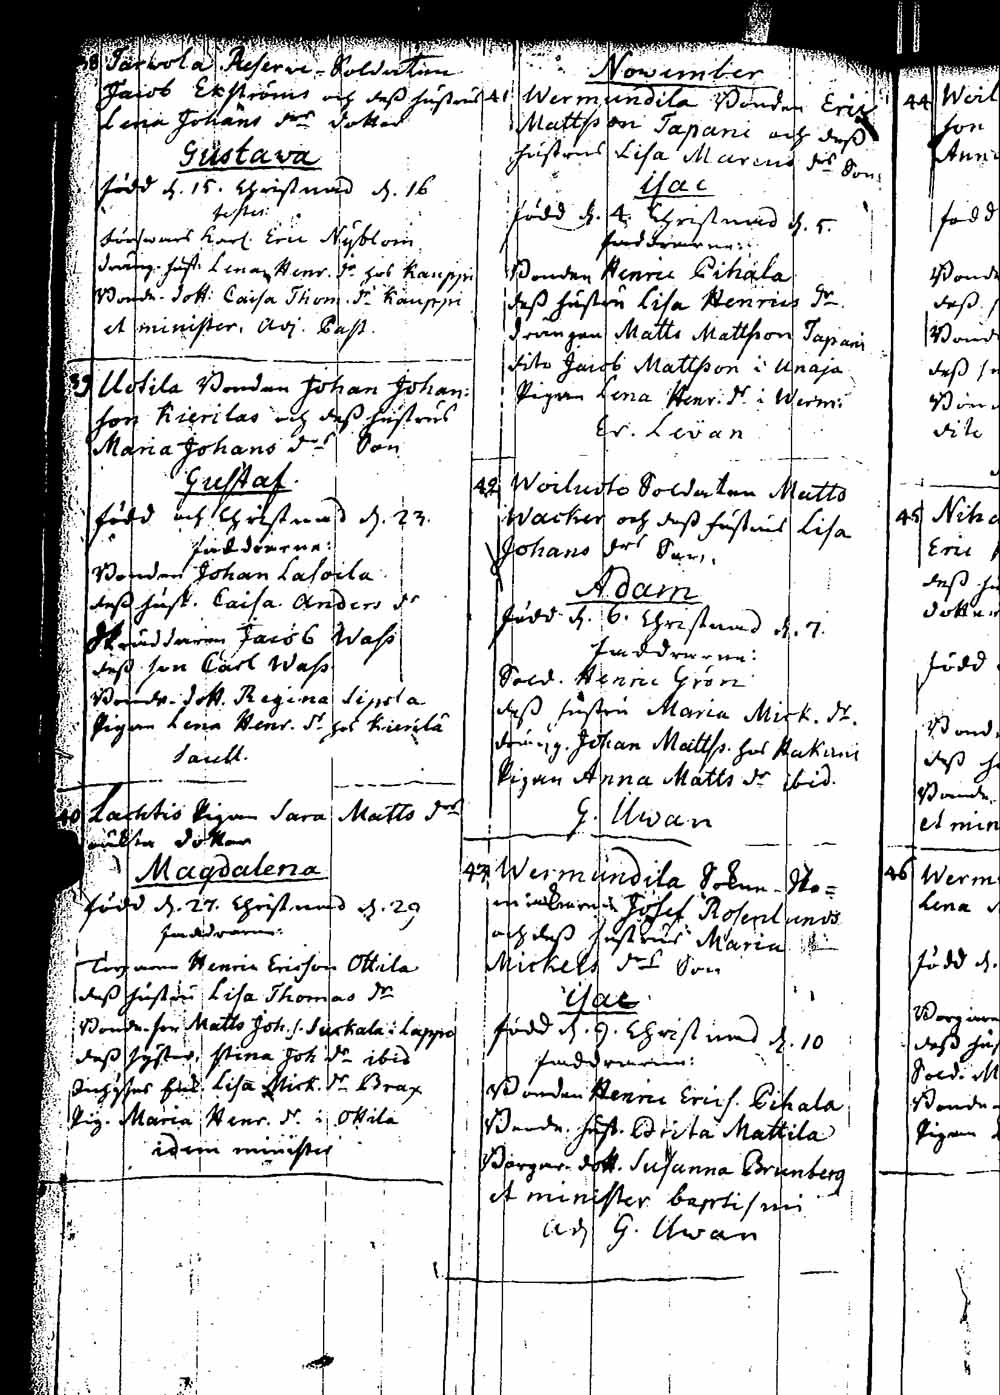 38 Jarvola Reserve-Soldaten
Jacob Ekströms och dess hustrus
Lena Johans dr dotter
Gustava
född d. 15. Christnad d. 16
testes:
Carl Eric Nyblom
dräng. hust. Lena Henr. dr hos Kauppi
Bonde-dott. Caisa Thom. dr Kauppi
et minister, Adj. Past.
39 Uotila Bonden Johan Johan-
son Kierilas och dess hustrus
Maria Johans dr Son
Gustaf.
född och Christnad d. 23.
faddrarne:
Bonden Johan Lasoila
dess hust. Caisa Anders dr
Skräddaren Jacob Wass
dess son Carl Wass
Bonde-dott. Regina Sipola
Pigan Lena Henr. dr hos Kierilä
40 Lachtis Pigan Sara Matts drs
oäkta dotter
Magdalena
född d. 27. Christnad d. 29
faddrarne:
Henric Ericsson Ottila
dess hustru Lisa Thomas dr
Bonde-son Matts Joh.s. Suckala i Lappi
dess syster, Stina Joh. dr ibid
Lisa Mick. dr Brax
Pig. Maria Henr. dr i Ottila
idem minister
November
41 Wermundila Bonden Eric
Mattsson Tapani och dess
hustrus Lisa Marcus drs Son
Isac
född d. 4. Christnad d. 5.
faddrarne:
Bonden Henric Pihala
dess hustru Lisa Henrics dr.
drängen Matts Mattsson Tapani
dito Jacob Mattsson i Unaja
Pigan Lena Henr. dr i Werm:
Er. Levan
42 Woiluoto Soldaten Matts
Wacker och dess hustrus Lisa
Johans drs Son.
Adam
född d. 6. Christnad d. 7.
faddrarne:
Sold. Henric Grön
dess hustru Maria Mick. dr.
dräng. Johan Matts. hos Hakuni
Pigan Anna Matts dr ibid.
G. Uwan
43 Wermundila Sokne-Sko-
makaren Josef Rosenlunds
och dess hustrus Maria
Mickels drs Son
Isac
född d. 9. Christnad d. 10
faddrarne:
Bonden Henric Erics. Pihala
Bonde. hust. Brita Mattila
Borgar-dott. Susanna Brunberg
et minister baptismi
Adj G. Uwan
44
Anna
född
Bonde
dess
Bond
dess
dito
45
Eric
dess
dotter
född
Bond
dess
Bonde
et min
46 Werm
Lena
född d.
dess
Sold. M
Bonde
Pigan